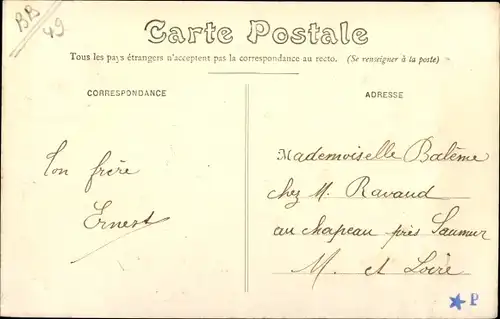 BB
49
Carte Postale
Tous les pays étrangers n'acceptent pas la correspondance au recto. (Se renseigner à la poste)
CORRESPONDANCE
ADRESSE
Ton frère
Ernest
Mademoiselle Balème
chez M. Ravaud
au chapeau près Saumur
M. et Loire
P